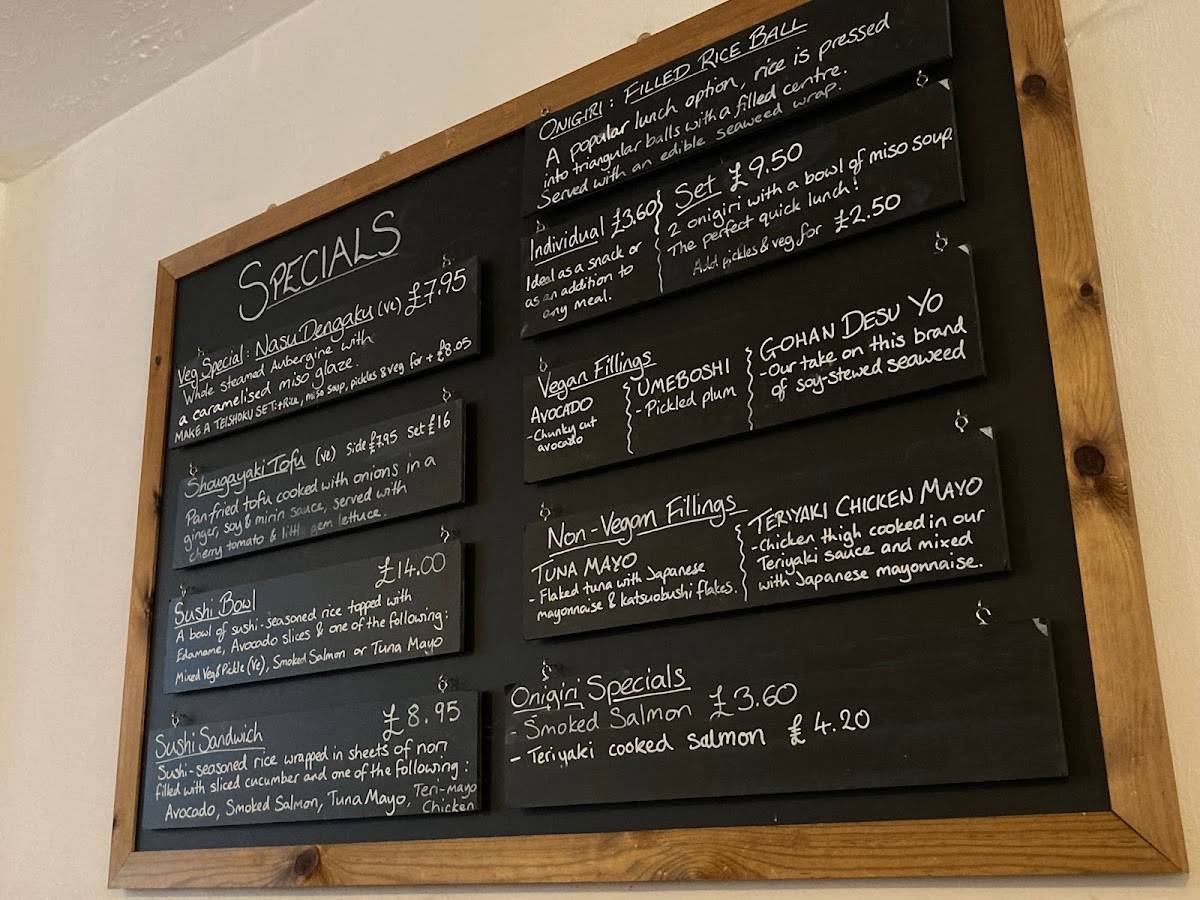 SPECIALS
Veg Special: Nasu Dengaku (ve) £7.95
Whole steamed Aubergine with
a caramelised miso glaze.
MAKE A TEISHOKU SET: +Rice, miso soup, pickles & veg for + £8.05
Shougayaki Tofu (ve) Side £7.95 Set £16
Pan-fried tofu cooked with onions in a
ginger, soy & mirin sauce, served with
Cherry tomato & little gem lettuce.
£14.00
Sushi Bowl
A bowl of sushi-seasoned rice topped with
Edamame, Avocado slices & one of the following:
Mixed Veg & Pickle (ve), Smoked Salmon or Tuna Mayo
£8.95
Sushi Sandwich
Sushi-seasoned rice wrapped in sheets of nori
filled with sliced cucumber and one of the following:
Avocado, Smoked Salmon, Tuna Mayo, Teri-mayo
Chicken
ONIGIRI: FILLED RICE BALL
A popular lunch option, rice is pressed
into triangular balls with a filled centre.
Served with an edible seaweed wrap.
Individual £3.60
Ideal as a snack or
as an addition to
any meal.
Set £9.50
2 onigiri with a bowl of miso soup.
The perfect quick lunch!
Add pickles & veg for £2.50
Vegan Fillings
AVOCADO
- Chunky cut
avocado
UMEBOSHI
- Pickled plum
GOHAN DESU YO
- Our take on this brand
of soy-stewed seaweed
Non-Vegan Fillings
TUNA MAYO
- Flaked tuna with Japanese
mayonnaise & katsuobushi flakes.
TERIYAKI CHICKEN MAYO
- Chicken thigh cooked in our
Teriyaki sauce and mixed
with Japanese mayonnaise.
Onigiri Specials
- Smoked Salmon £3.60
- Teriyaki cooked salmon £4.20